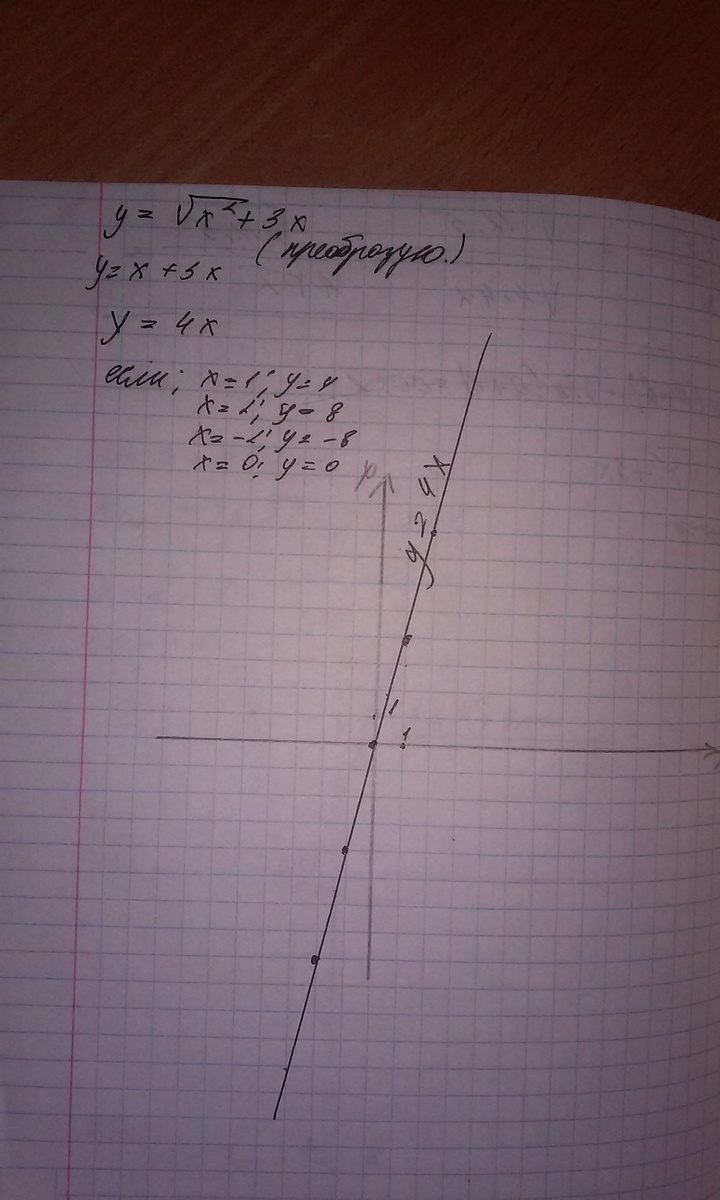 y = √x² + 3x
(преобразую.)
y = x + 3x
y = 4x
если; x = 1; y = 4
x = 2; y = 8
x = -2; y = -8
x = 0; y = 0
y
y = 4x
1
1